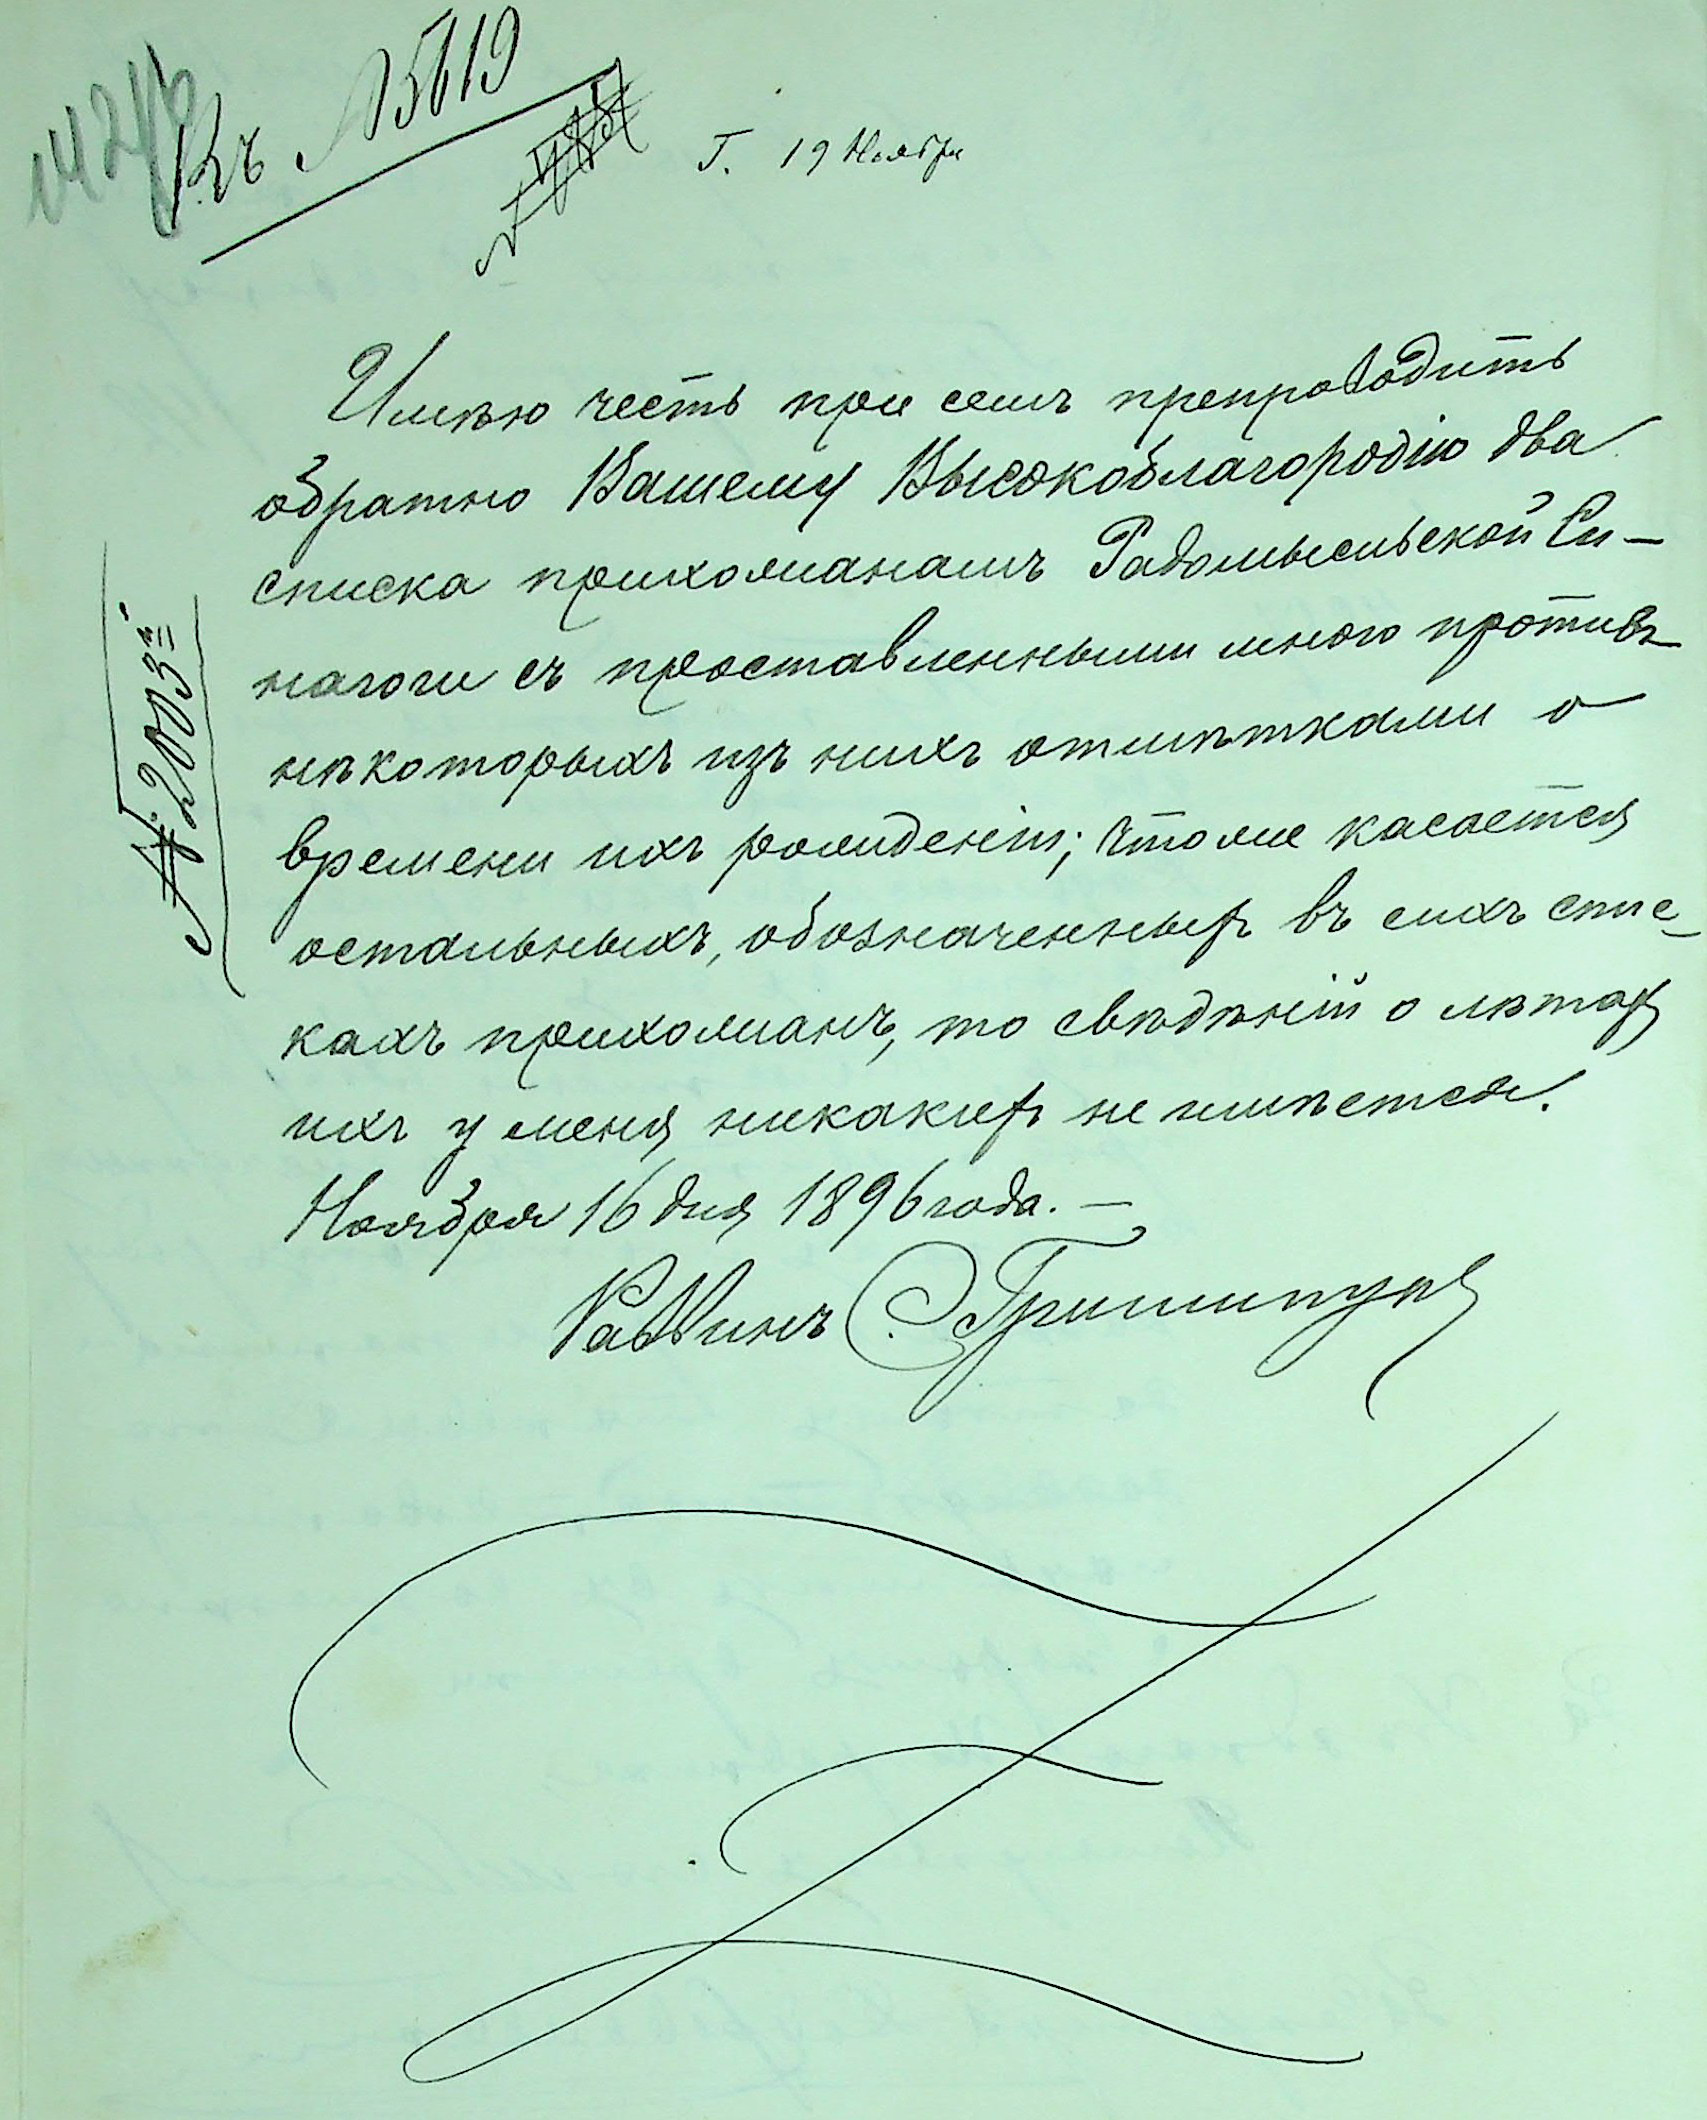 Къ №5619
Г. 19 Ноября
Имѣю честь при семъ препроводить
обратно Вашему Высокоблагородію два
списка прихожанамъ Радомысльской Си-
нагоги съ проставленными мною противъ
нѣкоторыхъ изъ нихъ отмѣтками о
времени ихъ рожденія; что же касается
остальныхъ, обозначенныхъ въ сихъ спис-
кахъ прихожанъ, то свѣдѣній о лѣтахъ
ихъ у меня никакихъ не имѣется.
Ноября 16 дня 1896 года. —
Раввинъ С. Гришпунъ
№ 2003й